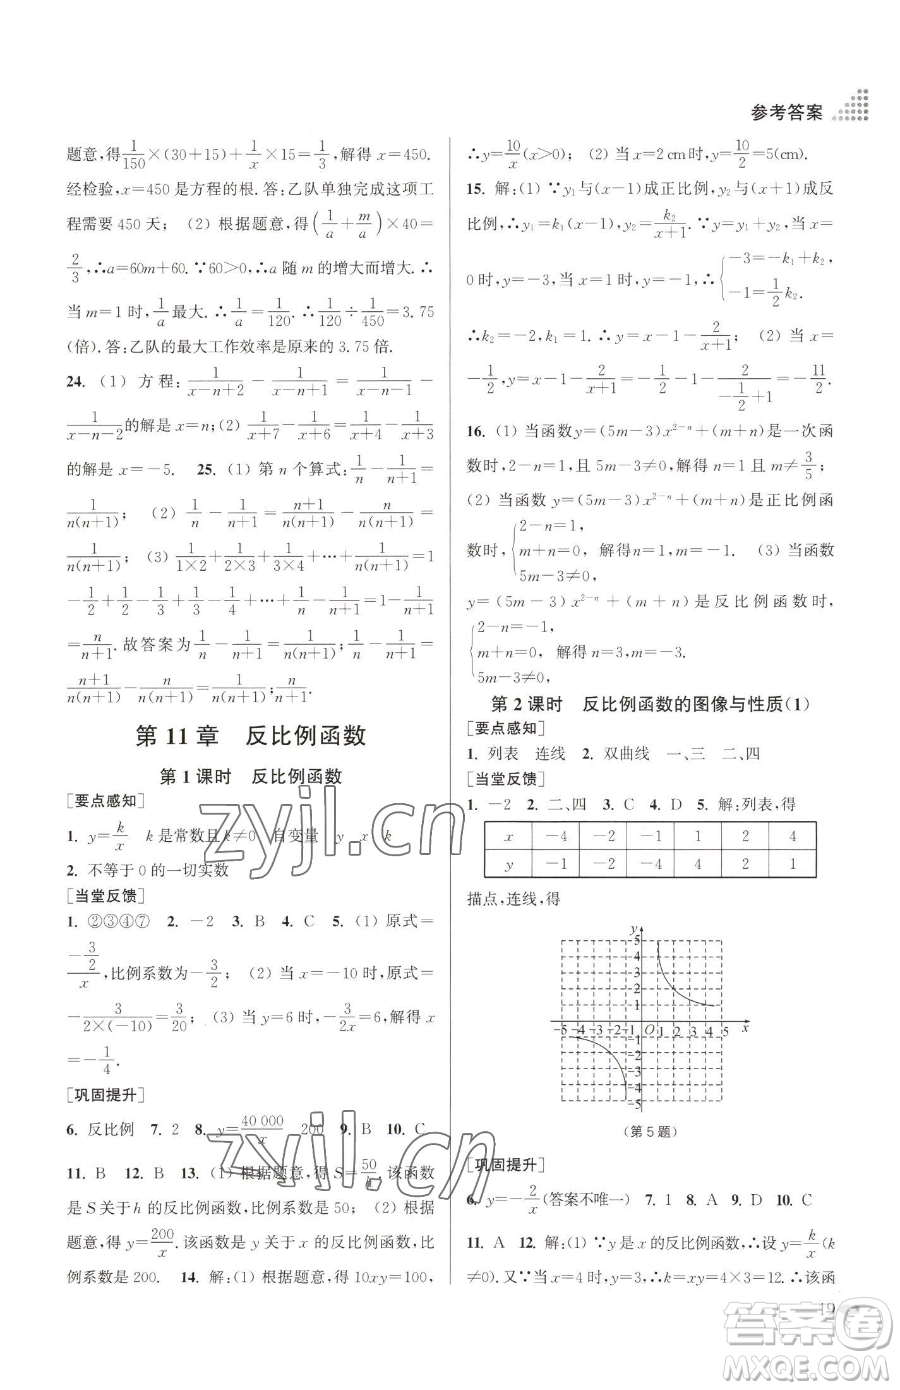 参考答案
题意,得1/150×(30+15)+1/x×15=1/3,解得 x=450.
经检验,x=450 是方程的根.答:乙队单独完成这项工
程需要 450 天;(2)根据题意,得(1/a+m/a)×40=
2/3,∴a=60m+60.∵60>0,∴a 随 m 的增大而增大.∴
当 m=1 时,1/a最大.∴1/a=1/120.∴1/120÷1/450=3.75
(倍).答:乙队的最大工作效率是原来的 3.75 倍.
24.(1)方程:1/(x-n+2)-1/(x-n+1)=1/(x-n-1)-
1/(x-n-2)的解是 x=n;(2)1/(x+7)-1/(x+6)=1/(x+4)-1/(x+3)
的解是 x=-5. 25.(1)第 n 个算式:1/n-1/(n+1)=
1/(n(n+1));(2)1/n-1/(n+1)=(n+1)/(n(n+1))-n/(n(n+1))=
1/(n(n+1));(3)1/(1×2)+1/(2×3)+1/(3×4)+…+1/(n(n+1))=1
-1/2+1/2-1/3+1/3-1/4+…+1/n-1/(n+1)=1-1/(n+1)
=n/(n+1).故答案为1/n-1/(n+1)=1/(n(n+1));1/n-1/(n+1)=
(n+1)/(n(n+1))-n/(n(n+1))=1/(n(n+1)).
第 11 章 反比例函数
第 1 课时 反比例函数
[要点感知]
1. y=k/x k 是常数且k≠0 自变量 y x k
2. 不等于 0 的一切实数
[当堂反馈]
1. ②③④⑦ 2. -2 3. B 4. C 5.(1)原式=
(-3/2)/x,比例系数为-3/2;(2)当 x=-10 时,原式=
-3/(2×(-10))=3/20;(3)当 y=6 时,-3/(2x)=6,解得 x
=-1/4.
[巩固提升]
6. 反比例 7. 2 8. y=40 000/x 200 9. B 10. C
11. B 12. B 13.(1)根据题意,得 S=50/h,该函数
是 S 关于 h 的反比例函数,比例系数是 50;(2)根据
题意,得 y=200/x.该函数是 y 关于 x 的反比例函数,比
例系数是 200. 14. 解:(1)根据题意,得 10xy=100,
∴y=10/x(x>0);(2)当 x=2 cm 时,y=10/2=5(cm).
15. 解:(1)∵y₁与(x-1)成正比例,y₂与(x+1)成反
比例,∴y₁=k₁(x-1),y₂=k₂/(x+1).∵y=y₁+y₂,当 x=
0 时,y=-3,当 x=1 时,y=-1,∴{-3=-k₁+k₂, -1=1/2k₂.
∴k₂=-2,k₁=1,∴y=x-1-2/(x+1);(2)当 x=
-1/2时,y=x-1-2/(x+1)=-1/2-1-2/(-1/2+1)=-11/2.
16.(1)当函数 y=(5m-3)x²⁻ⁿ+(m+n)是一次函
数时,2-n=1,且 5m-3≠0,解得 n=1,m≠3/5;
(2)当函数 y=(5m-3)x²⁻ⁿ+(m+n)是正比例函
数时,{2-n=1, m+n=0, 5m-3≠0, 解得 n=1,m=-1.(3)当函数
y=(5m-3)x²⁻ⁿ+(m+n)是反比例函数时,
{2-n=-1, m+n=0, 5m-3≠0, 解得 n=3,m=-3.
第 2 课时 反比例函数的图像与性质(1)
[要点感知]
1. 列表 连线 2. 双曲线 一、三 二、四
[当堂反馈]
1. -2 2. 二、四 3. C 4. A 5. 解:列表,得
x -4 -2 -1 1 2 4
y -1 -2 -4 4 2 1
描点,连线,得
y
5
4
3
2
1
-5 -4 -3 -2 -1 O 1 2 3 4 5 x
-1
-2
-3
-4
-5
(第 5 题)
[巩固提升]
6. y=-2/x(答案不唯一) 7. 1 8. A 9. D 10. C
11. A 12. 解:(1)∵y 是 x 的反比例函数,∴设 y=k/x(k
≠0).又∵当 x=4 时,y=3,∴k=4×3=12.∴该函
19
zyjl.cn
zyjl.cn
答案圈
MXQE.COM